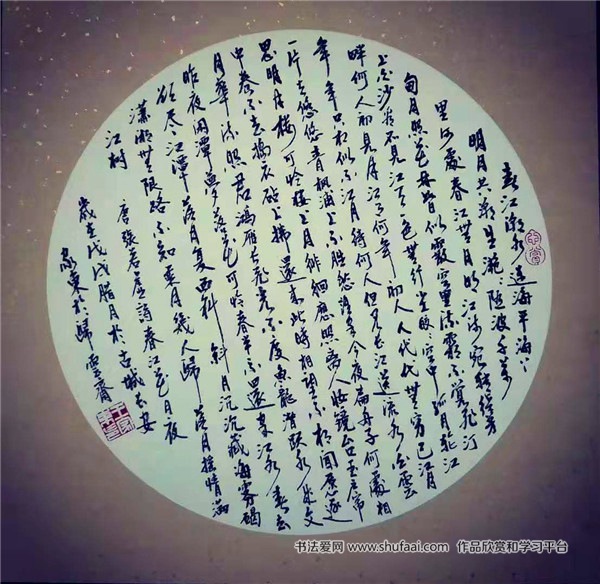 春江潮水連海平海上
明月共潮生灧灧隨波千萬
里何處春江無月明江流宛轉繞芳
甸月照花林皆似霰空里流霜不覺飛汀
上白沙看不見江天一色無纤尘皎皎空中孤月輪江
畔何人初見月江月何年初照人人生代代無窮已江月
年年只相似不知江月待何人但見長江送流水白雲
一片去悠悠青楓浦上不勝愁誰家今夜扁舟子何處相
思明月樓可怜樓上月徘徊應照离人妝鏡台玉戶帘
中卷不去搗衣砧上拂還來此時相望不相聞愿逐
月華流照君鴻雁長飛光不度魚龍潛躍水成文
昨夜闲潭夢落花可怜春半不還家江水流春去
欲尽江潭落月复西斜斜月沉沉藏海雾碣石
瀟湘無限路不知乘月幾人歸落月搖情滿
江树
唐張若虛詩春江花月夜
歲在戊戌腊月於古城長安
於歸雲齋
书法爱网 www.shufaai.com 作品欣赏和学习平台